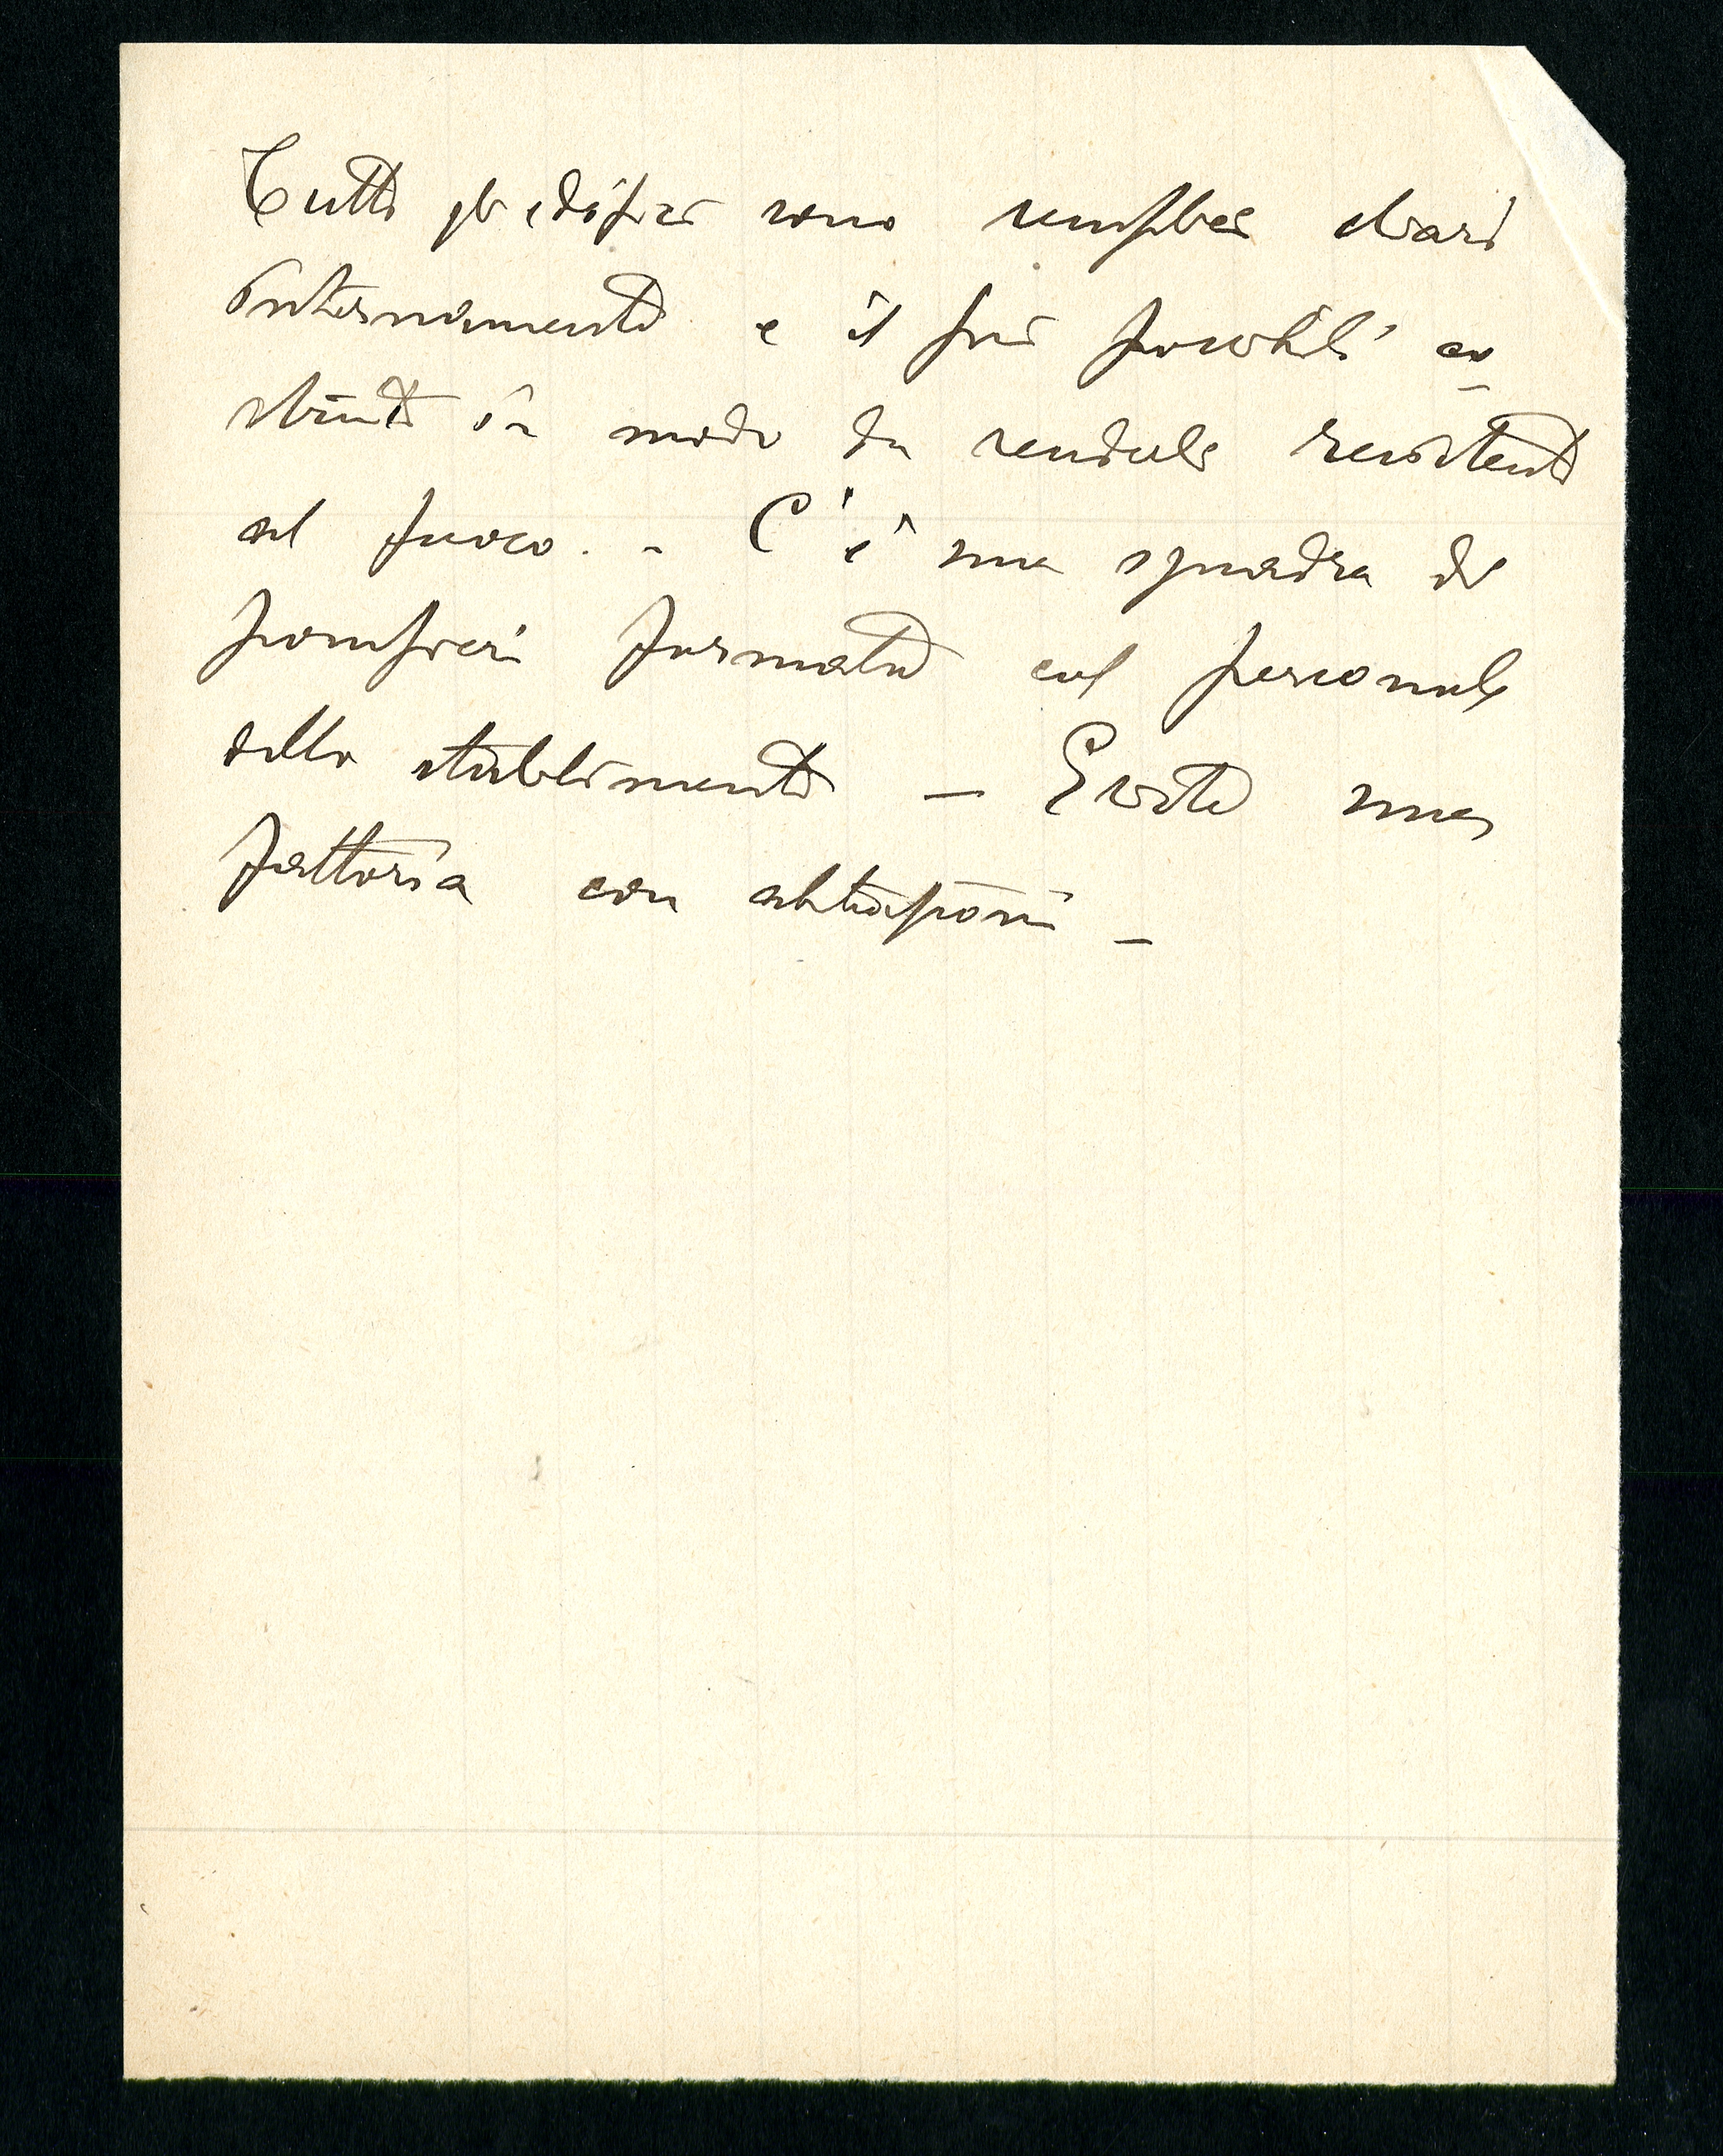 Tutti gli edifici sono semplici chiari
internamente e il piú possibili co
struiti in modo da renderli resistenti
al fuoco. - C'è una squadra di
pompieri formata col personale
dello stabilimento — Esiste una
fattoria con abitazioni —